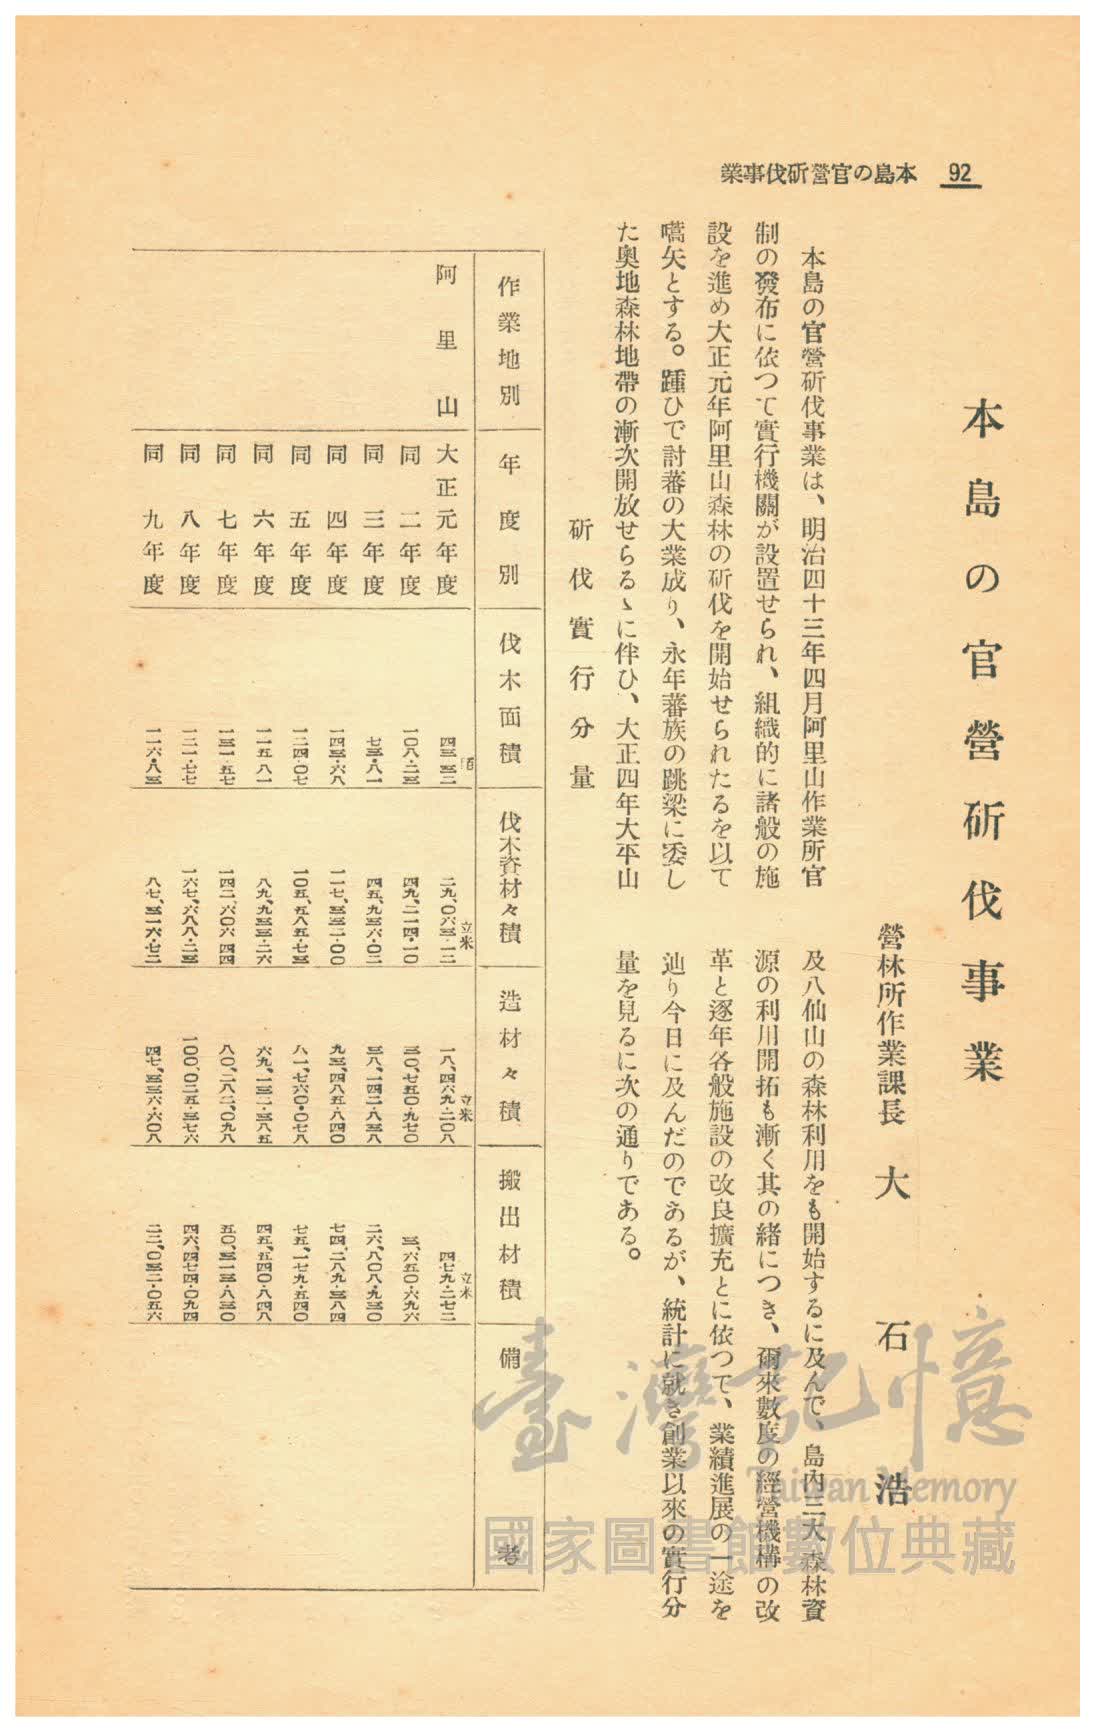 92 本島の官營斫伐事業
本島の官營斫伐事業
營林所作業課長 大石浩
本島の官營斫伐事業は、明治四十三年四月阿里山作業所官
制の發布に依つて實行機關が設置せられ、組織的に諸般の施
設を進め大正元年阿里山森林の斫伐を開始せられたるを以て
嚆矢とする。踵ひで討蕃の大業成り、永年蕃族の跳梁に委し
た奥地森林地帶の漸次開放せらるゝに伴ひ、大正四年大平山
及八仙山の森林利用をも開始するに及んで、島内三大森林資
源の利用開拓も漸く其の緒につき、爾來數度の經營機構の改
革と逐年各般施設の改良擴充とに依つて、業績進展の一途を
辿り今日に及んだのであるが、統計に就き創業以來の實行分
量を見るに次の通りである。
斫伐實行分量
作業地別 年度別 伐木面積 伐木資材々積 造材々積 搬出材積 備考
町 立米 立米 立米
阿里山 大正元年度 四三・三二 二九、〇六三・一二 一八、四六九・二〇八 四七九・二七二
同二年度 一〇八・二三 四九、二一四・一〇 三〇、七五〇・九七〇 三、六五〇・六九六
同三年度 七三・八一 四五、九三六・〇二 三八、一四二・八三八 二六、八〇八・九三〇
同四年度 一四三・六八 一一七、三三一・〇〇 九三、四八五・八四〇 七四、二八九・三八四
同五年度 一二四・〇七 一〇五、五八五・七三 八一、七六〇・〇七八 七五、一七九・五四〇
同六年度 一一五・八一 八九、九三三・二六 六九、一三二・三八五 四五、五四〇・八四八
同七年度 一三一・五七 一四二、六〇六・四四 八〇、二八二・〇九八 五〇、三一三・八三〇
同八年度 一三一・七七 一六七、六八八・二三 一〇〇、〇二五・三七六 四六、四七四・〇九四
同九年度 一一六・八三 八七、三一六・七二 四七、三三六・六〇八 二二、〇三二・〇五六
臺灣記憶
Taiwan Memory
國家圖書館數位典藏